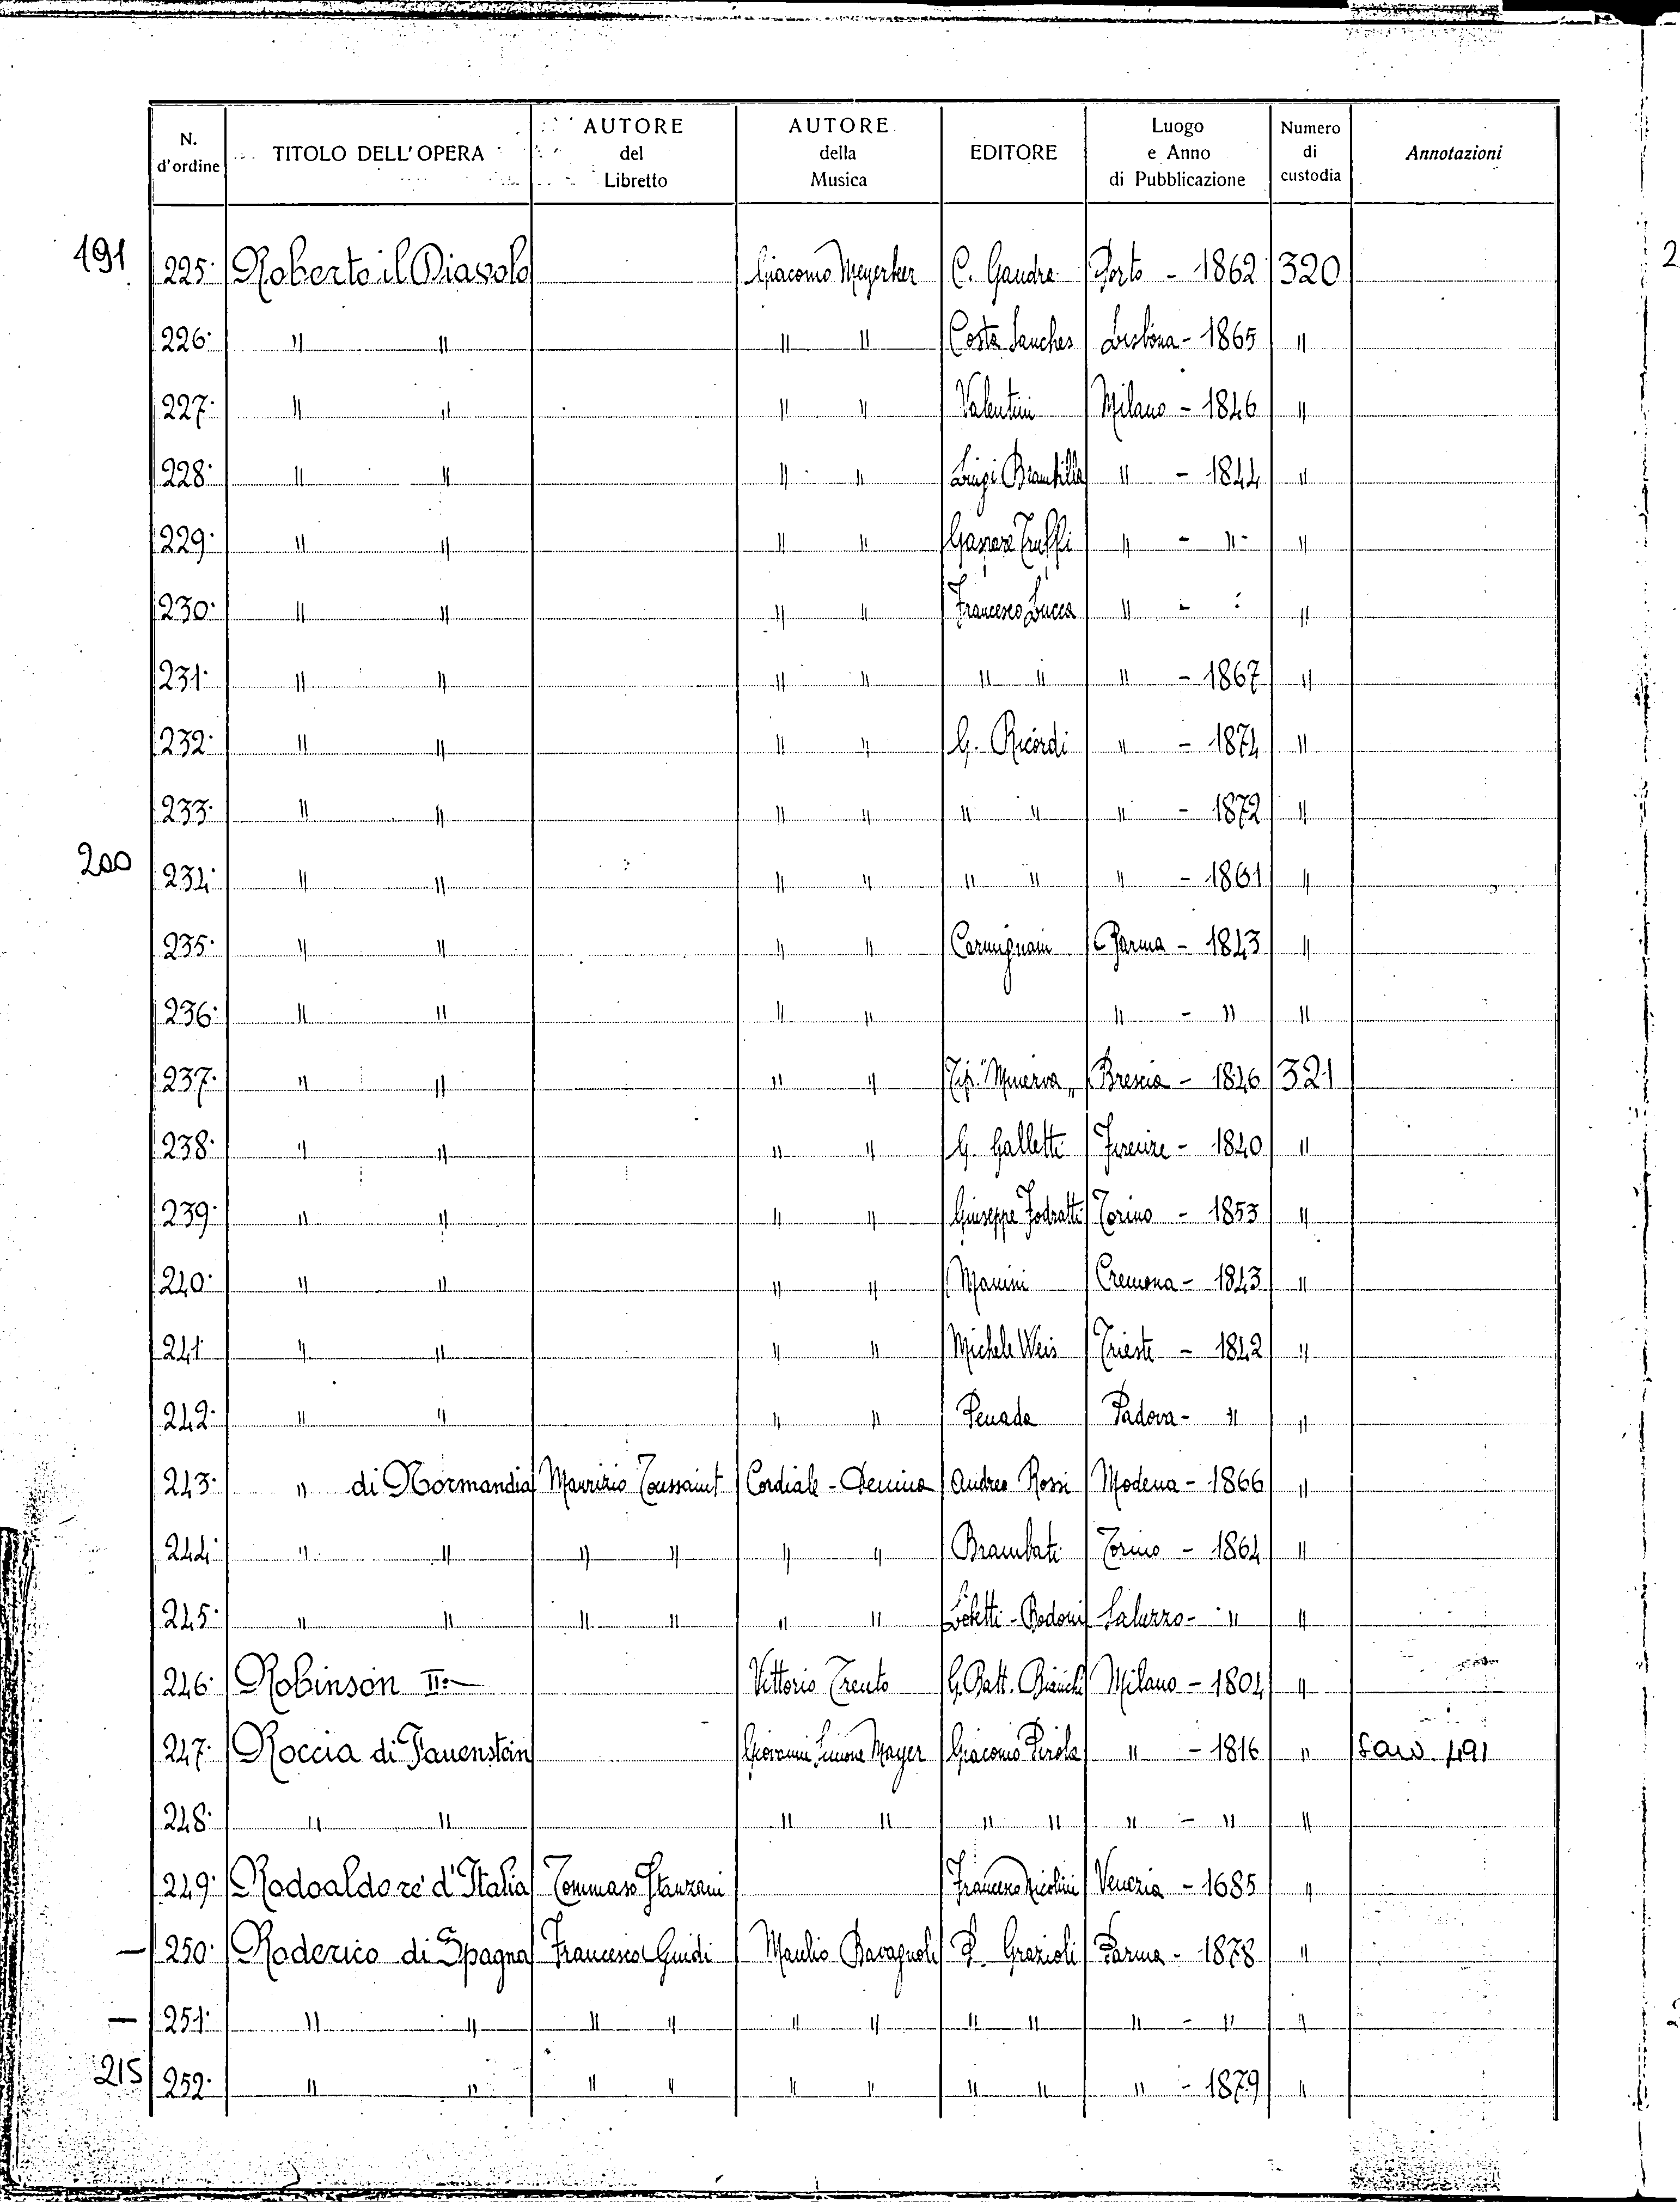 N. d'ordine TITOLO DELL'OPERA AUTORE del Libretto AUTORE della Musica EDITORE Luogo e Anno di Pubblicazione Numero di custodia Annotazioni
191 225· Roberto il Diavolo Giacomo Meyerber C. Gaudre Porto - 1862 320
226· " " " " Costa Sanches Lisbona - 1865 "
227· " " " " Valentini Milano - 1846 "
228· " " " " Luigi Brambilla " - 1844 "
229· " " " " Gaspare Truffi " - " "
230· " " " " Francesco Lucca " - "
231· " " " " " " " - 1867 "
232· " " " " G. Ricordi " - 1874 "
233· " " " " " " " - 1872 "
200 234· " " " " " " " - 1861 "
235· " " " " Carmignani Parma - 1843 "
236· " " " " " - " "
237· " " " " Tip. "Minerva" Brescia - 1846 321
238· " " " " G. Galletti Firenze - 1840 "
239· " " " " Giuseppe Fodratti Torino - 1853 "
240· " " " " Manini Cremona - 1843 "
241· " " " " Michele Weis Trieste - 1842 "
242· " " " " Penada Padova - " "
243· " di Normandia Maurizio Toussaint Cordiale - Demina Andrea Rossi Modena - 1866 "
244· " " " " " " Brambati Torino - 1864 "
245· " " " " " " Lobetti - Bodoni Saluzzo - " "
246· Robinson II:- Vittorio Trento G. Batt. Bianchi Milano - 1804 "
247· Roccia di Fauenstein Giovanni Simone Mayer Giacomo Pirola " - 1816 " 491
248· " " " " " " " - " "
249· Rodoaldo re d'Italia Tommaso Stanzani Francesco Nicolini Venezia - 1685 "
— 250· Roderico di Spagna Francesco Guidi Manlio Bavagnoli P. Grazioli Parma - 1878 "
— 251· " " " " " " " " " - " "
215 252· " " " " " " " " " - 1879 "